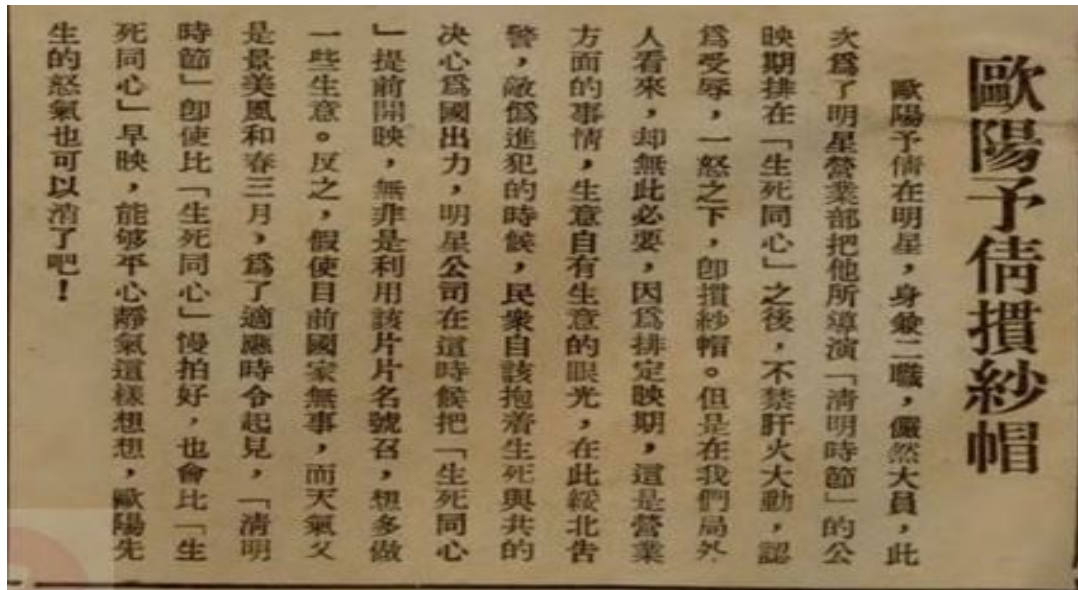 歐陽予倩摜紗帽
歐陽予倩在明星，身兼二職，儼然大員，此
次爲了明星營業部把他所導演「清明時節」的公
映期排在「生死同心」之後，不禁肝火大動，認
爲受辱，一怒之下，卽摜紗帽。但是在我們局外
人看來，却無此必要，因爲排定映期，這是營業
方面的事情，生意自有生意的眼光，在此綏北吿
警，敵僞進犯的時候，民衆自該抱着生死與共的
决心爲國出力，明星公司在這時候把「生死同心
」提前開映，無非是利用該片片名號召，想多做
一些生意。反之，假使目前國家無事，而天氣又
是景美風和春三月，爲了適應時令起見，「淸明
時節」卽使比「生死同心」慢拍好，也會比「生
死同心」早映，能够平心靜氣這樣想想，歐陽先
生的怒氣也可以消了吧！